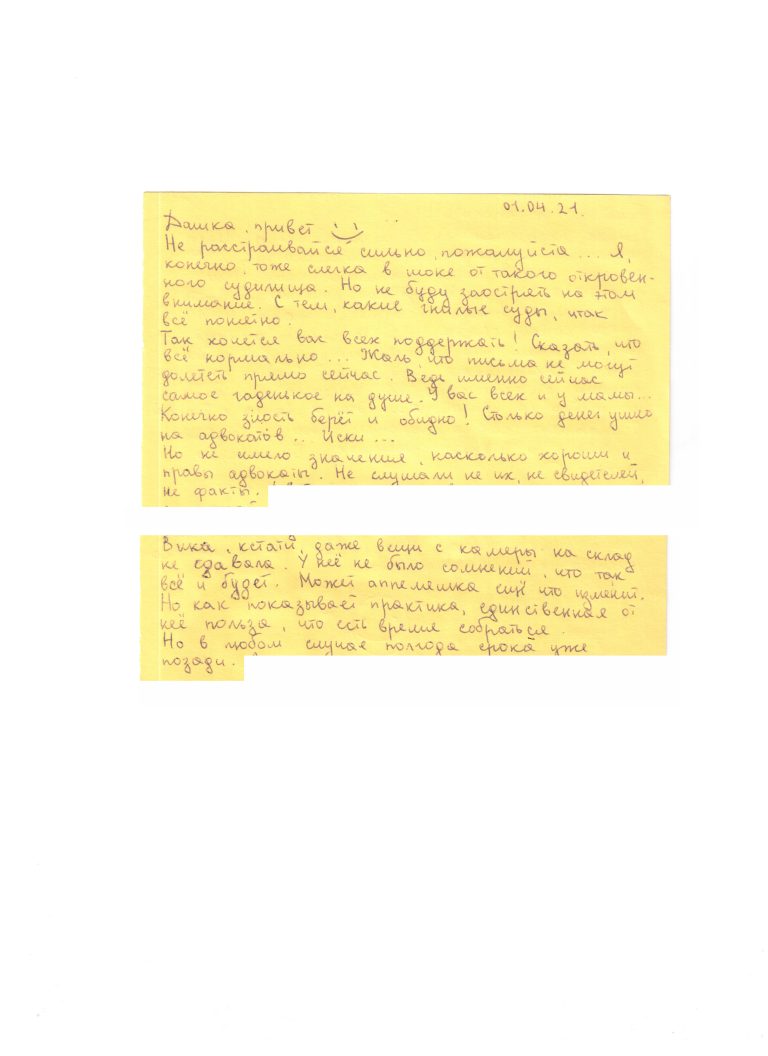 01.04.21.
Дашка, привет
Не расстраивайся сильно, пожалуйста... Я,
конечно, тоже слегка в шоке от такого откровен-
ного судилища. Но не буду заострять на этом
внимание. С тем, какие гнилые суды, итак
всё понятно.
Так хочется вас всех поддержать! Сказать, что
всё нормально... Жаль что письма не могут
долететь прямо сейчас. Ведь именно сейчас
самое гаденькое на душе. У вас всех и у мамы...
Конечно злость берёт и обидно! Столько денег ушло
на адвокатов... Иски...
Но не имело значения, насколько хороши и
правы адвокаты. Не слушали не их, не свидетелей,
не факты.
Вика, кстати, даже вещи с камеры на склад
не сдавала. У неё не было сомнений, что так
всё и будет. Может аппеляшка что изменит.
Но как показывает практика, единственная от
неё польза, что есть время собраться.
Но в любом случае полгода срока уже
позади.